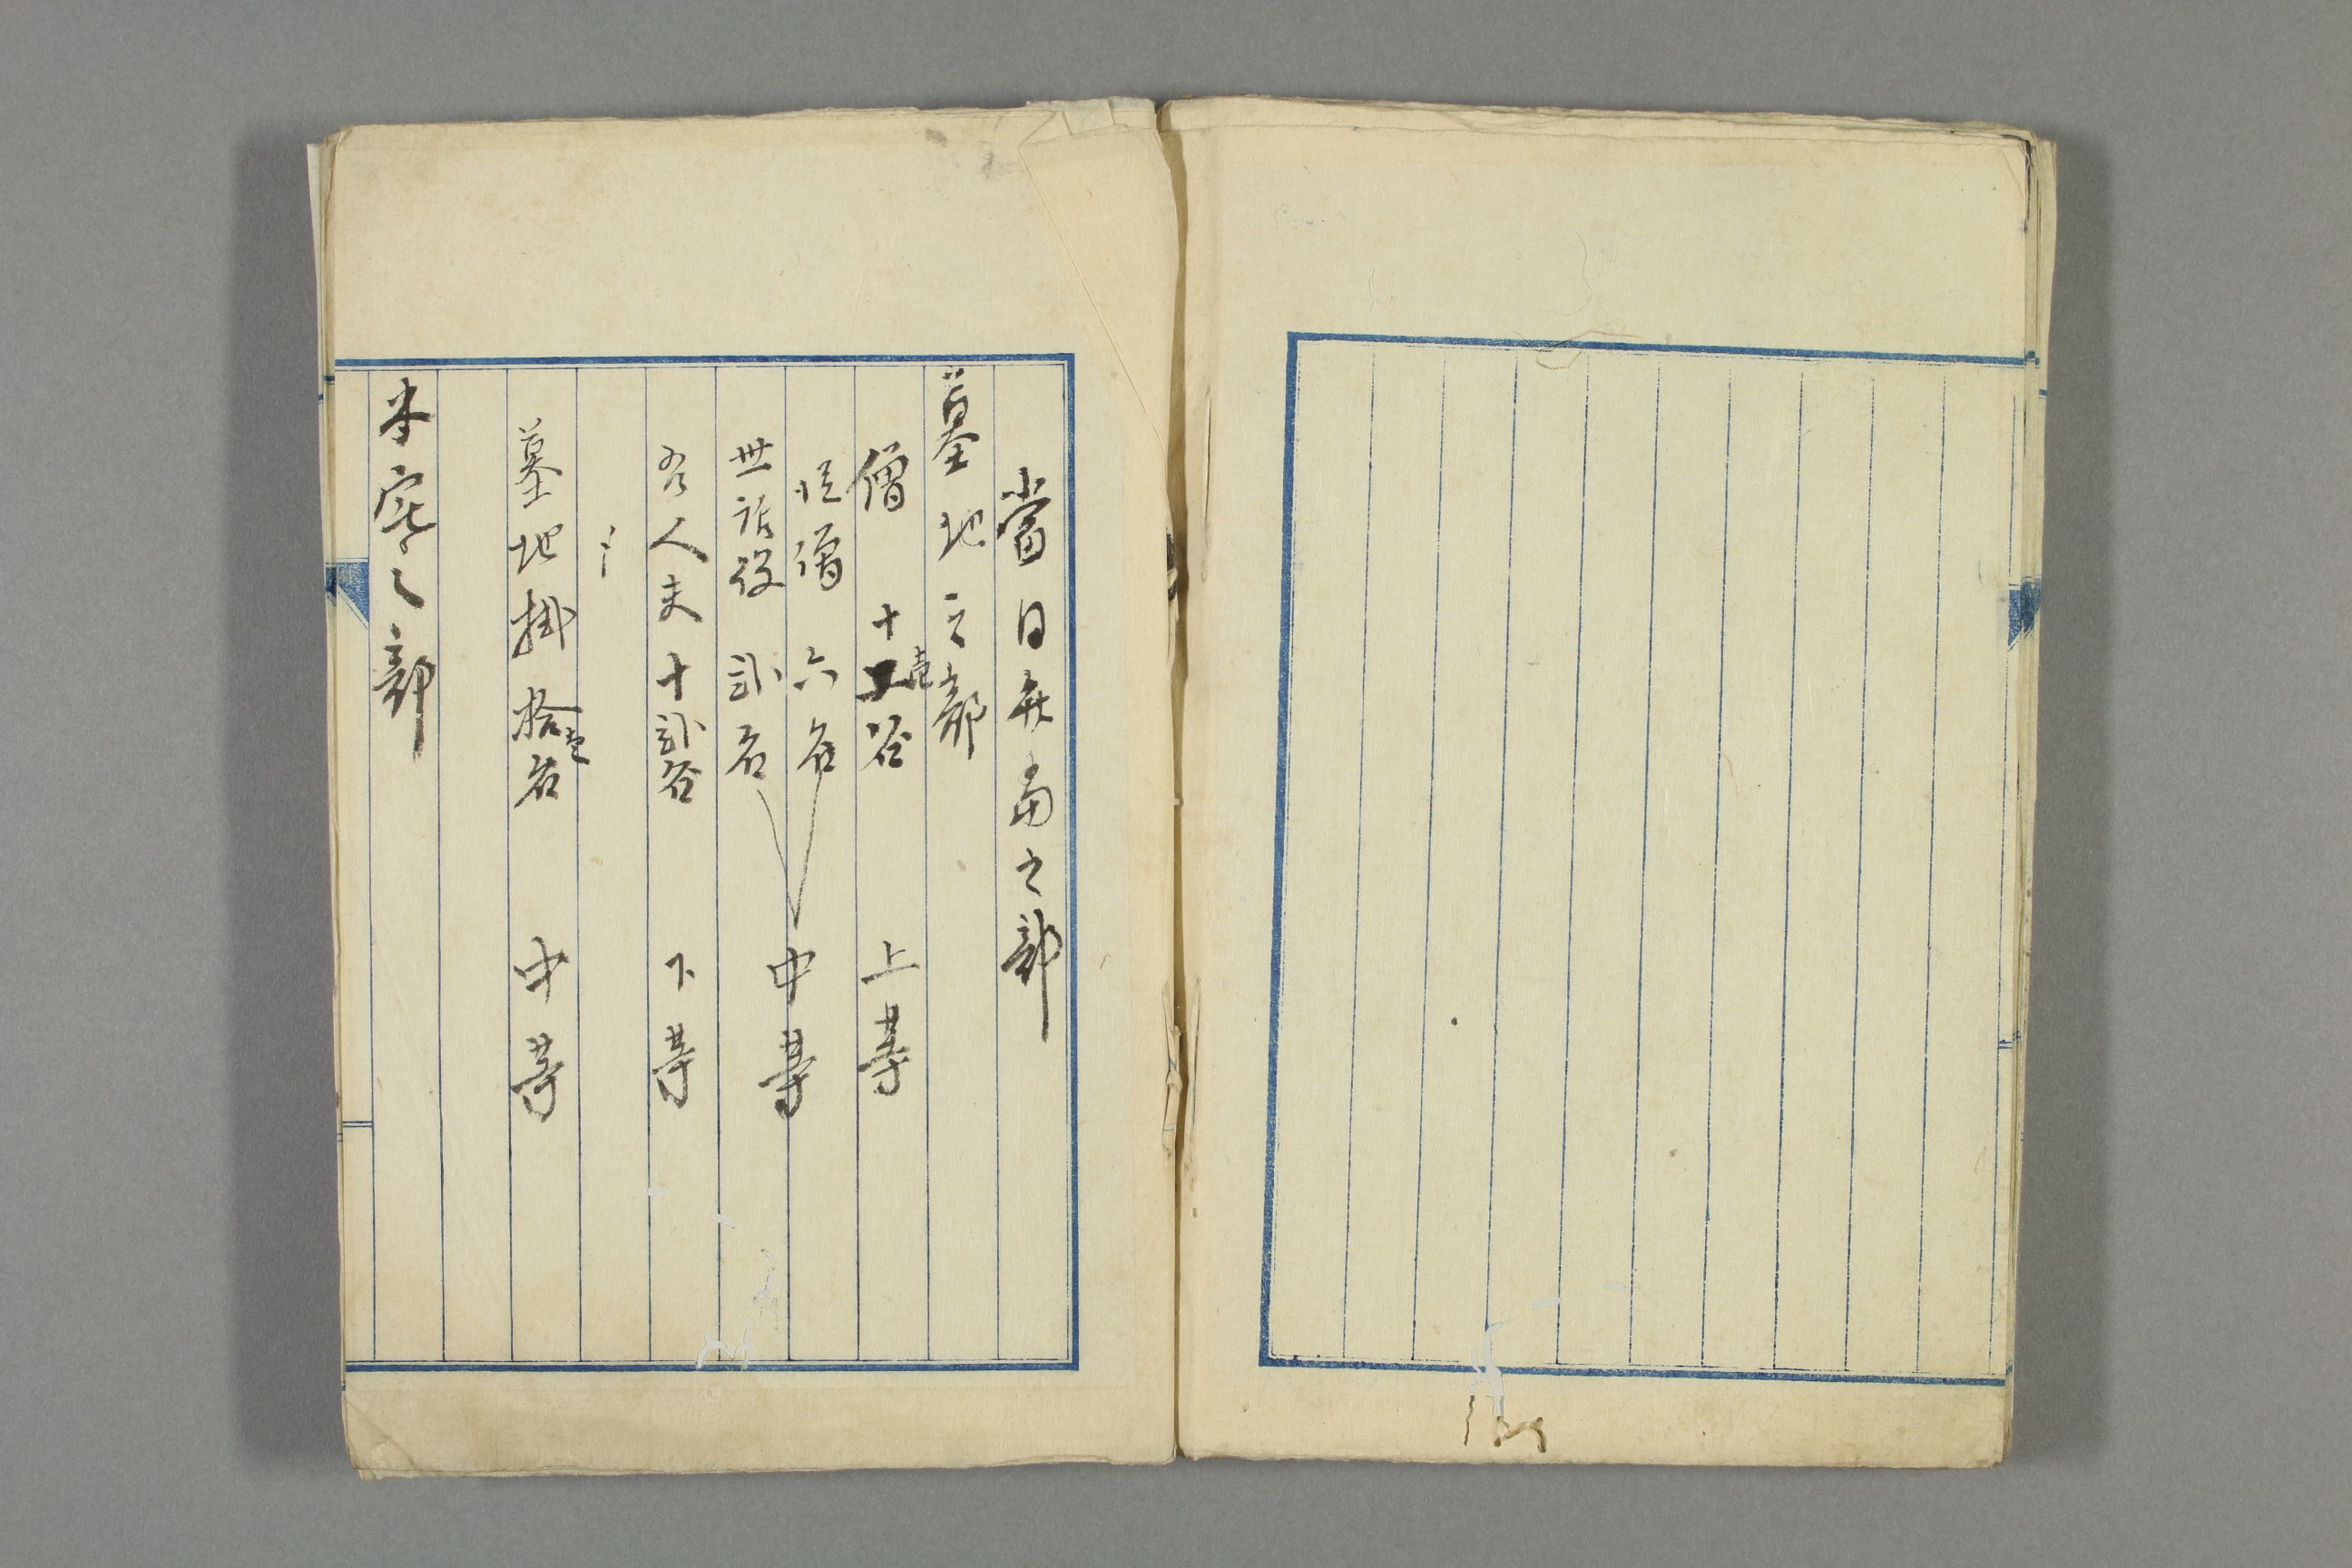 當日弁当之部
墓地之部
僧 十壱名 上等
従僧 六名
世話役 弐名 中等
人夫 十弐名 下等
墓地掛 拾壱名 中等
本宅之部